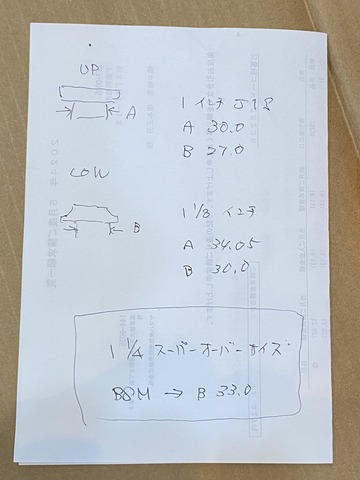 UP
A
1 インチ JIS
A 30.0
B 27.0
LOW
B
1 1/8 インチ
A 34.05
B 30.0
1 1/4 スーパーオーバーサイズ
BSM → B 33.0